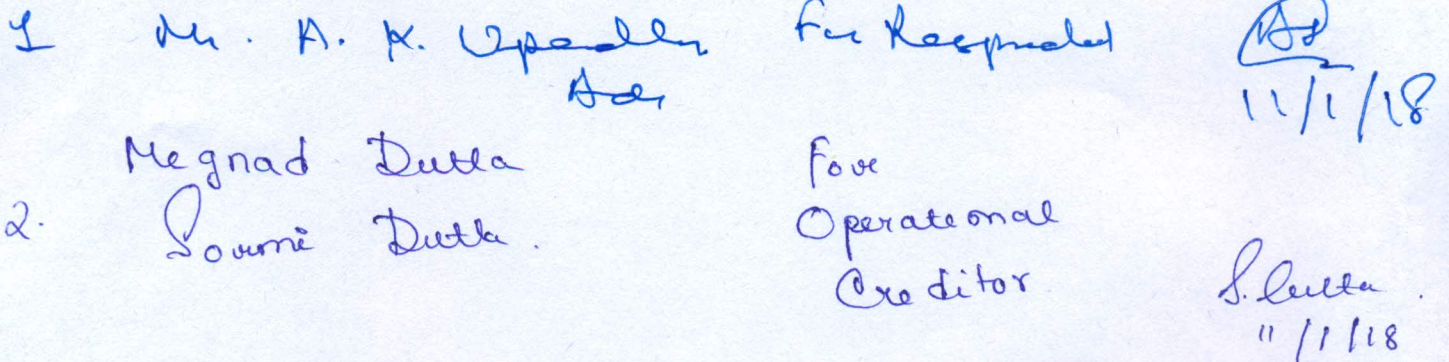 1 Mr. A. K. Upadhy For Respondent
Adv 11/1/18
Megnad Dutta For
2. Soumi Dutta. Operational
Creditor S. Dutta.
11/1/18